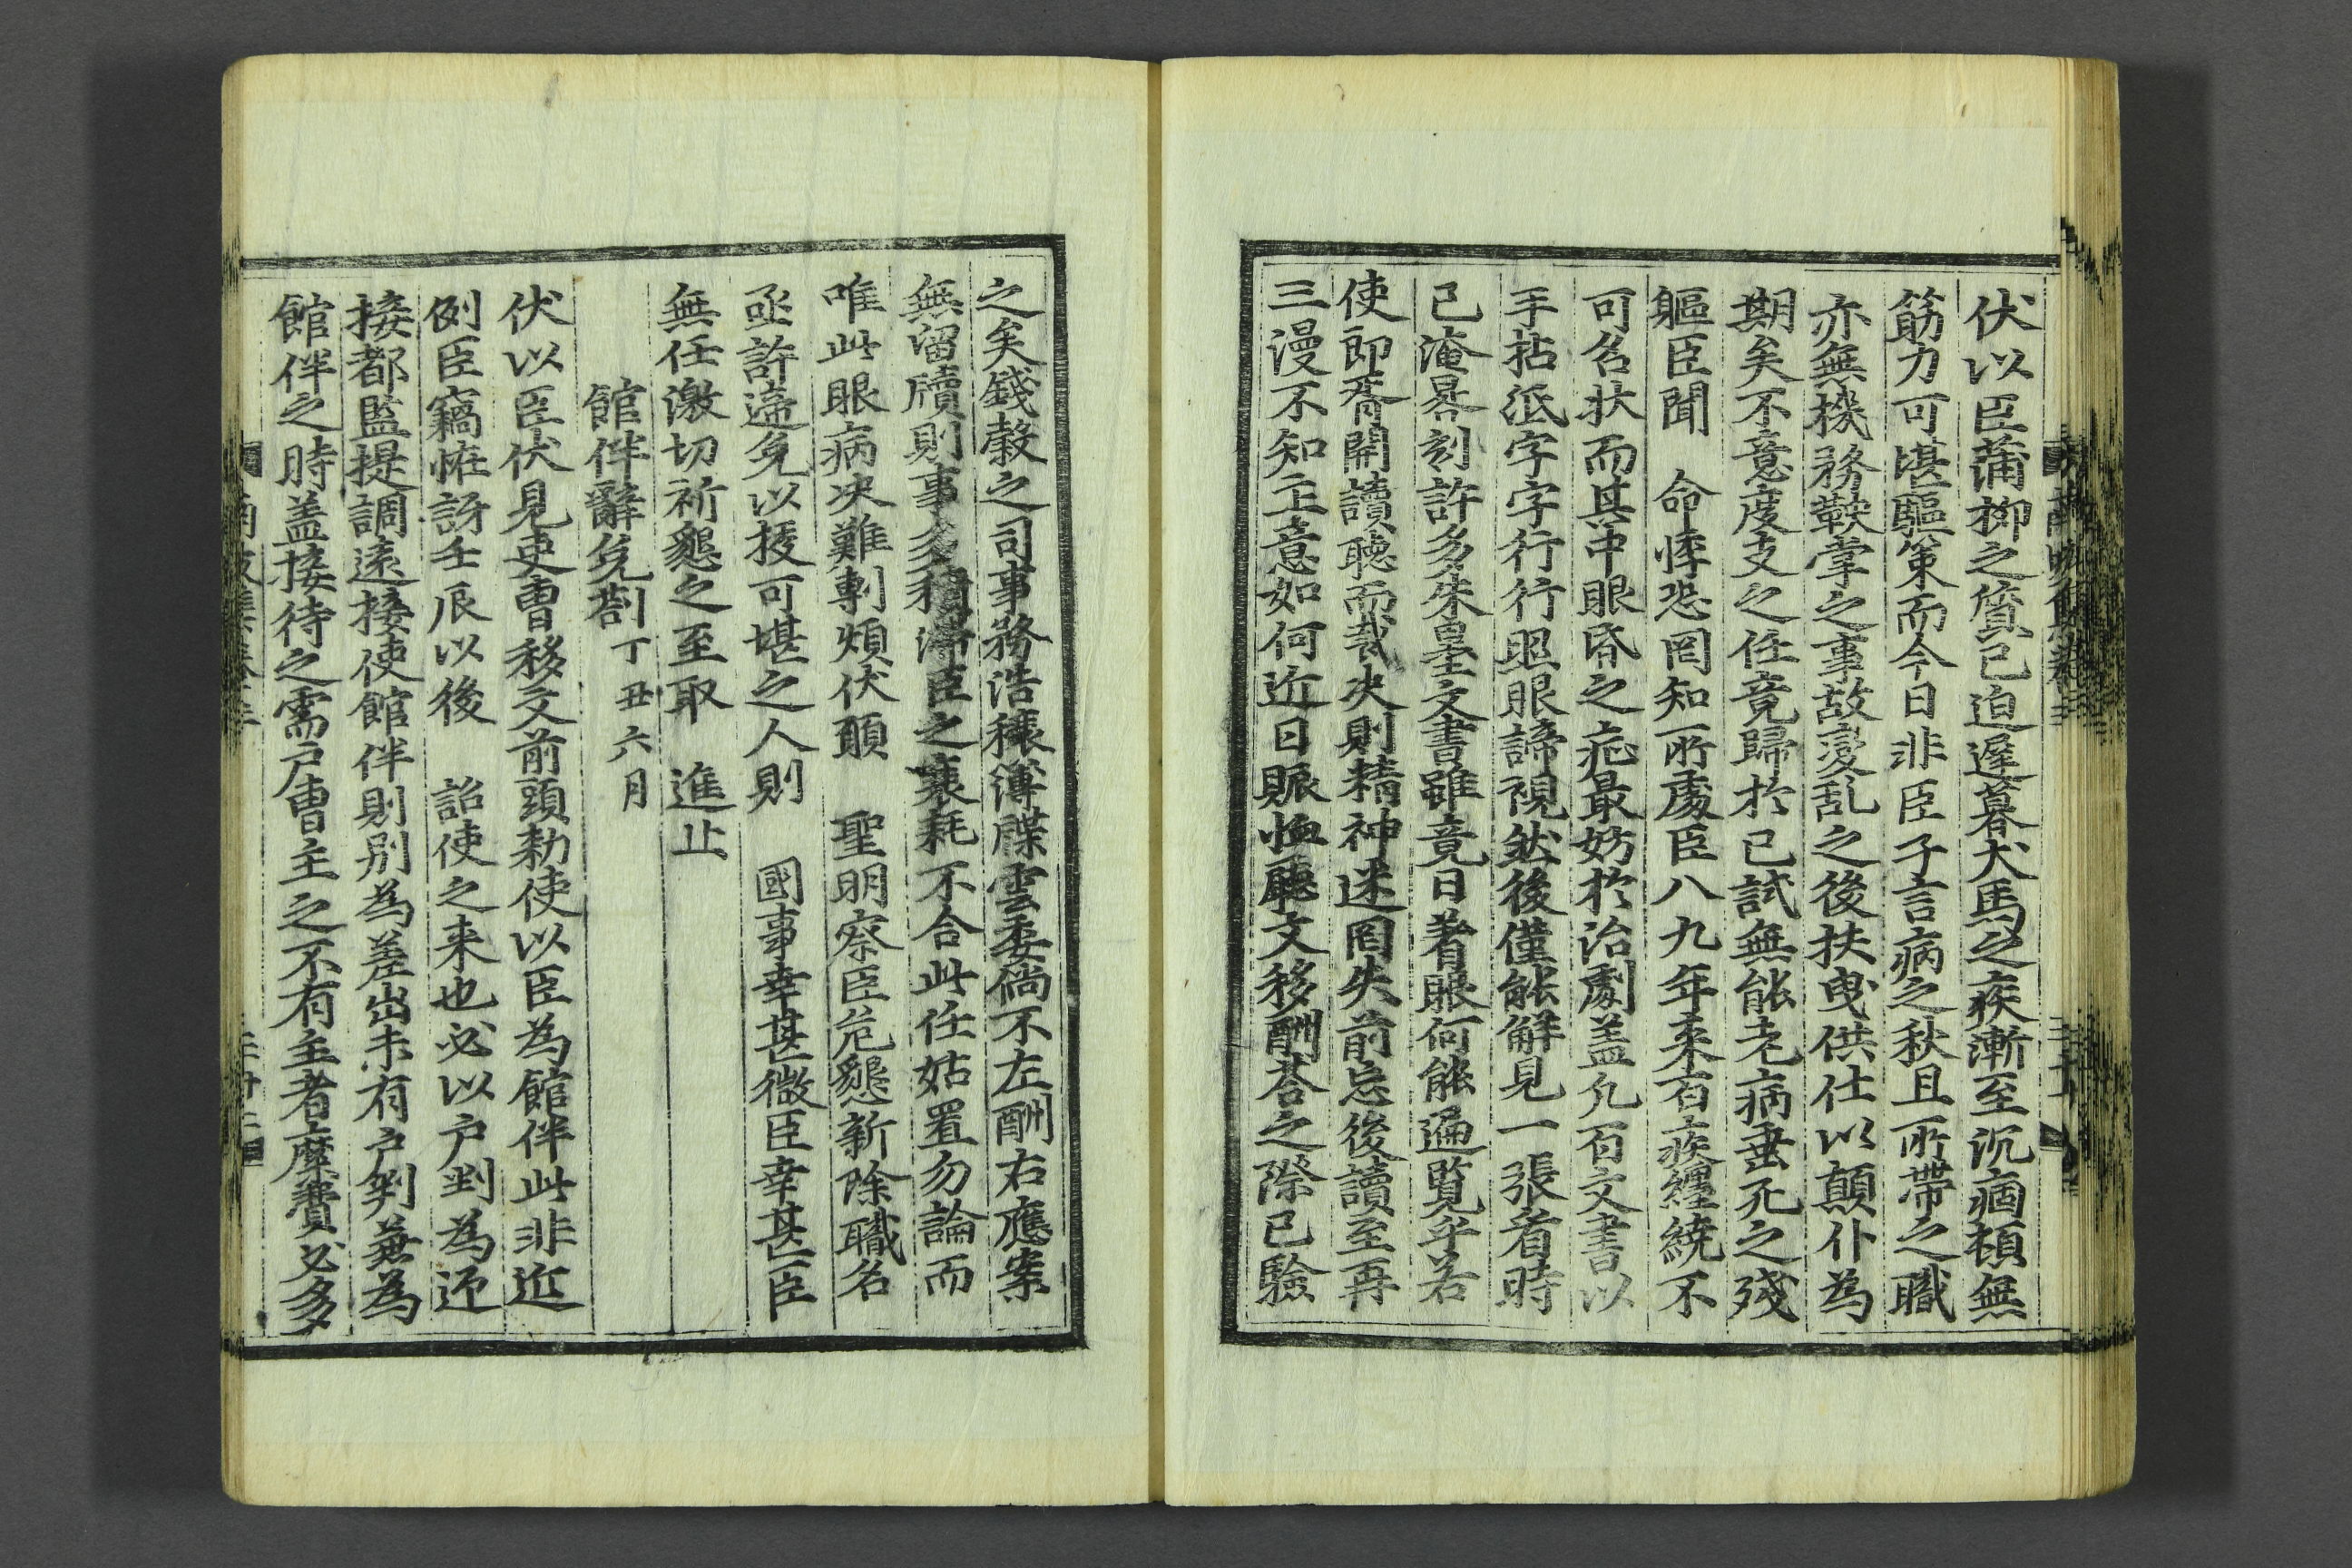 伏以臣蒲柳之質已迫遲暮犬馬之疾漸至沉痼頓無
筋力可堪驅策而今日非臣子言病之秋且所帶之職
亦無機務鞅掌之事故變乱之後扶曳供仕以顛仆為
期矣不意度支之任竟歸於已試無能老病垂死之殘
軀臣聞　命悸恐罔知所處臣八九年來百疾纏繞不
可名狀而其中眼昏之症最妨於治劇盖凡百文書以
手拈紙字字行行照眼諦視然後僅能解見一張看時
已淹晷刻許多朱墨文書雖竟日着眼何能遍覧乎若
使郎胥開讀聽而裁决則精神迷罔失前忘後讀至再
三漫不知主意如何近日賑恤廳文移酬荅之際已驗
之矣錢穀之司事務浩穰簿牒雲委倘不左酬右應案
無留牘則事多積滯臣之衰耗不合此任姑置勿論而
唯此眼病决難剸煩伏願　聖明察臣危懇新除職名
亟許遆免以授可堪之人則　國事幸甚微臣幸甚臣
無任激切祈懇之至取　進止
館伴辭免劄丁丑六月
伏以臣伏見吏曹移文前頭勅使以臣為館伴此非近
例臣竊恠訝壬辰以後　詔使之来也必以户判為迎
接都監提調遠接使館伴則别為差出未有户判兼為
館伴之時盖接待之需户曹主之不有主者糜費必多